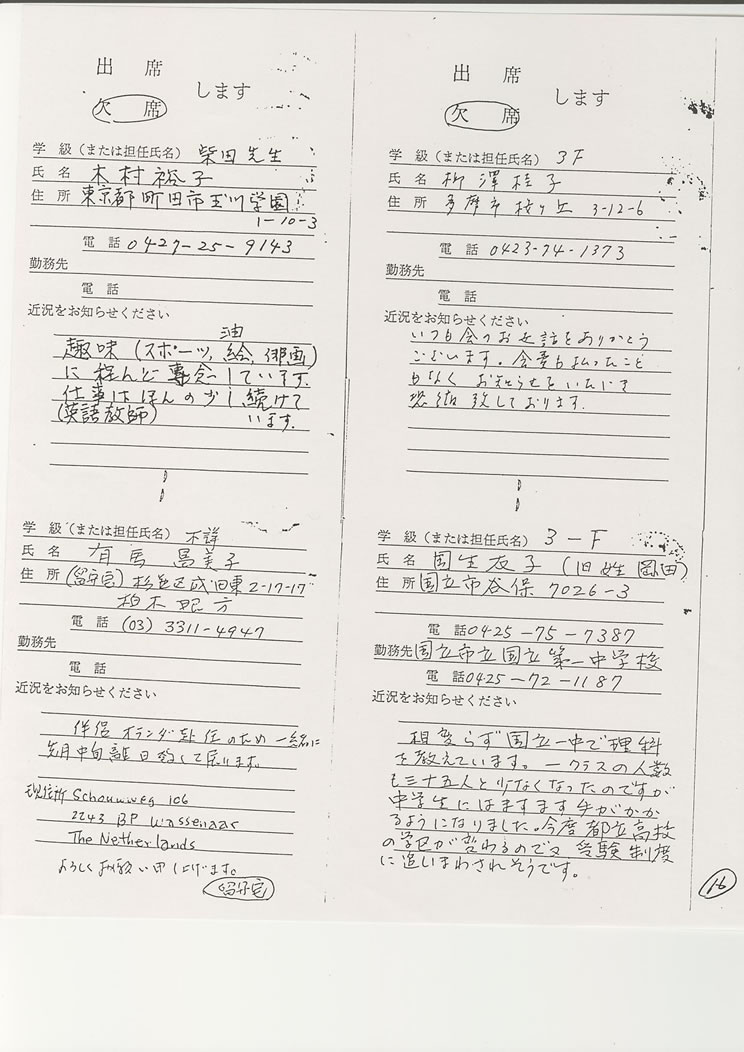 出 席
欠 席
します
学 級（または担任氏名） 柴田先生
氏 名 木村裕子
住 所 東京都町田市玉川学園
1-10-3
電 話 0427-25-9143
勤務先
電 話
近況をお知らせください
油
趣味（スポーツ, 絵, 俳画）
に殆んど専念しています.
仕事はほんの少し続けて
(英語教師) います.
学 級（または担任氏名） 不詳
氏 名 有馬 美子
住 所 (留守宅) 杉並区成田東2-17-17
柏木 方
電 話 (03) 3311-4947
勤務先
電 話
近況をお知らせください
伴侶オランダ赴任のため一緒に
先月中旬離日致して居ります。
現住所 Schouwweg 106
2243 BP Wassenaar
The Netherlands
よろしくお願い申し上げます。
留守宅
出 席
欠 席
します
学 級（または担任氏名） 3F
氏 名 柳澤桂子
住 所 多摩市桜ヶ丘 3-12-6
電 話 0423-74-1373
勤務先
電 話
近況をお知らせください
いつも会のお世話をありがとう
ございます。会費も払ったこと
もなく お知らせをいただき
恐縮致しております.
学 級（または担任氏名） 3-F
氏 名 国生友子 (旧姓 岡田)
住 所 国立市谷保 7026-3
電 話 0425-75-7387
勤務先 国立市立国立第一中学校
電 話 0425-72-1187
近況をお知らせください
相変らず国立一中で理科
を教えています。一クラスの人数
も三十五人と少なくなったのですが
中学生にはますます手がかか
るようになりました。今度都立高校
の学区が変わるので又 受験制度
に追いまわされそうです。
16